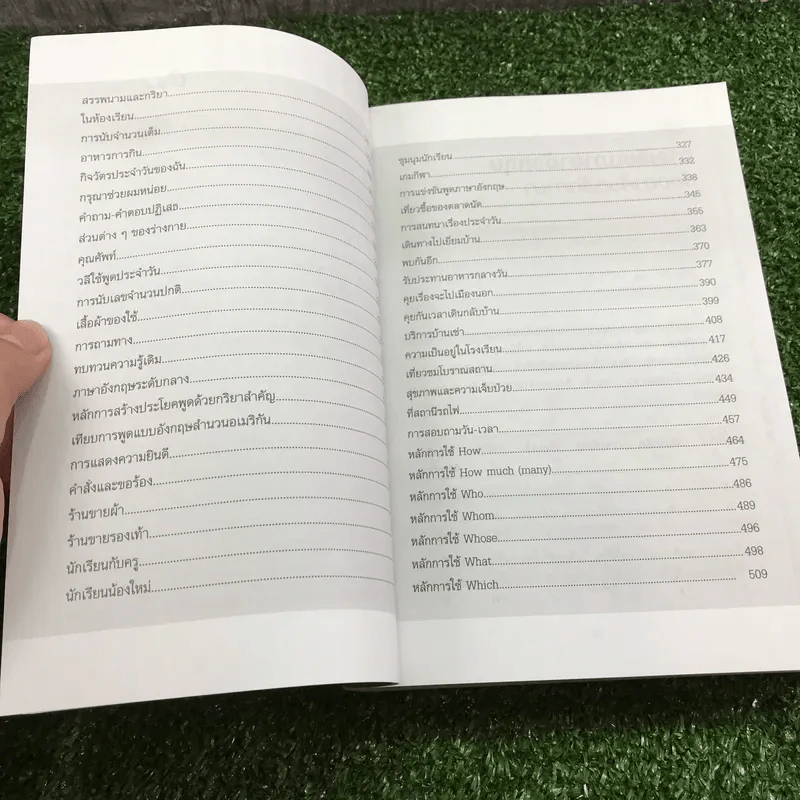 สรรพนามและกริยา
ในห้องเรียน
การนับจำนวนเต็ม
อาหารการกิน
กิจวัตรประจำวันของฉัน
กรุณาช่วยผมหน่อย
คำถาม-คำตอบปฏิเสธ
ส่วนต่าง ๆ ของร่างกาย
คุณศัพท์
วลีใช้พูดประจำวัน
การนับเลขจำนวนปกติ
เสื้อผ้าของใช้
การถามทาง
ทบทวนความรู้เดิม
ภาษาอังกฤษระดับกลาง
หลักการสร้างประโยคพูดด้วยกริยาสำคัญ
เทียบการพูดแบบอังกฤษสำนวนอเมริกัน
การแสดงความยินดี
คำสั่งและขอร้อง
ร้านขายผ้า
ร้านขายรองเท้า
นักเรียนกับครู
นักเรียนน้องใหม่
ชุมนุมนักเรียน 327
เกมกีฬา 332
การแข่งขันพูดภาษาอังกฤษ 338
เที่ยวซื้อของตลาดนัด 345
การสนทนาเรื่องประจำวัน 355
เดินทางไปเยี่ยมบ้าน 363
พบกันอีก 370
รับประทานอาหารกลางวัน 377
คุยเรื่องจะไปเมืองนอก 390
คุยกันเวลาเดินกลับบ้าน 399
บริการบ้านเช่า 408
ความเป็นอยู่ในโรงเรียน 417
เที่ยวชมโบราณสถาน 426
สุขภาพและความเจ็บป่วย 434
ที่สถานีรถไฟ 449
การสอบถามวัน-เวลา 457
หลักการใช้ How 464
หลักการใช้ How much (many) 475
หลักการใช้ Who 486
หลักการใช้ Whom 489
หลักการใช้ Whose 496
หลักการใช้ What 498
หลักการใช้ Which 509